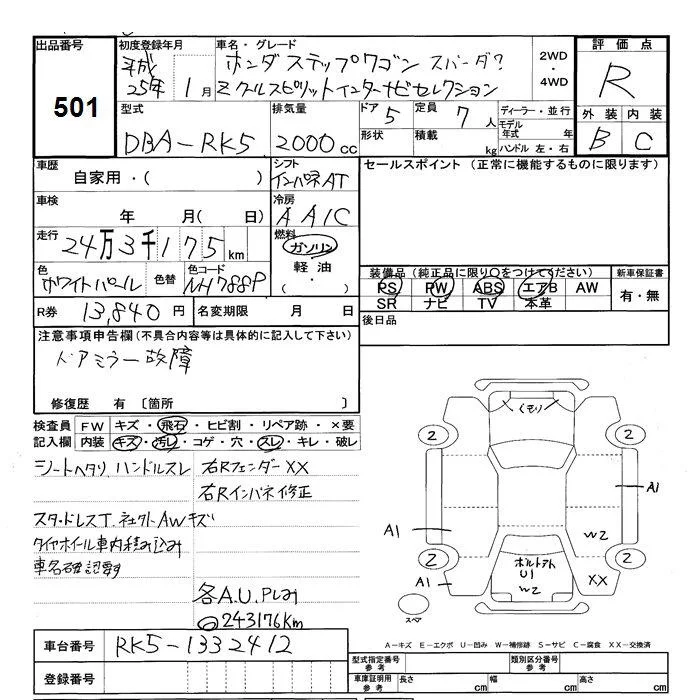 出品番号
501
初度登録年月
平成
25年 1月
車名・グレード
ホンダ ステップワゴン スパーダ?
Z クールスピリットインターナビセレクション
2WD
・
4WD
評価点
R
外装 内装
B C
型式
DBA-RK5
排気量
2000cc
ドア 5
形状
定員 7人
積載 kg
ディーラー・並行
モデル
年式 年
ハンドル 左・右
車歴
自家用・( )
シフト
インパネAT
セールスポイント (正常に機能するものに限ります)
車検
年 月( 日)
冷房
AAIC
走行
24万3千175km
燃料
ガソリン
軽油
( ・ )
色
ホワイトパール
色替
色コード
NH788P
装備品(純正品に限り○をつけてください)
PS PW ABS エアB AW
SR ナビ TV 本革
新車保証書
有・無
R券 13,840円
名変期限 月 日
後日品
注意事項申告欄(不具合内容等は具体的に記入して下さい)
ドアミラー故障
修復歴 有 〔箇所 〕
検査員
記入欄
FW キズ・飛石・ヒビ割・リペア跡・×要
内装 キズ・汚レ・コゲ・穴・スレ・キレ・破レ
シートヘタリ、ハンドルスレ
右Rフェンダー XX
右Rインパネ修正
スタッドレスT. 社外AWキズ
タイヤホイール車内積み込み
車名確認要す
各A.U.PLみ
243176Km
くもり
2
2
A1
A1
W2
2
2
ボルトアト
U1
W2
A1
XX
スペア
A-キズ E-エクボ U-凹み W-補修跡 S-サビ C-腐食 XX-交換済
車台番号 RK5-1332412
登録番号
型式指定番号
参考
類別区分番号
参考
車庫証明用
参考
長さ cm
幅 cm
高さ cm